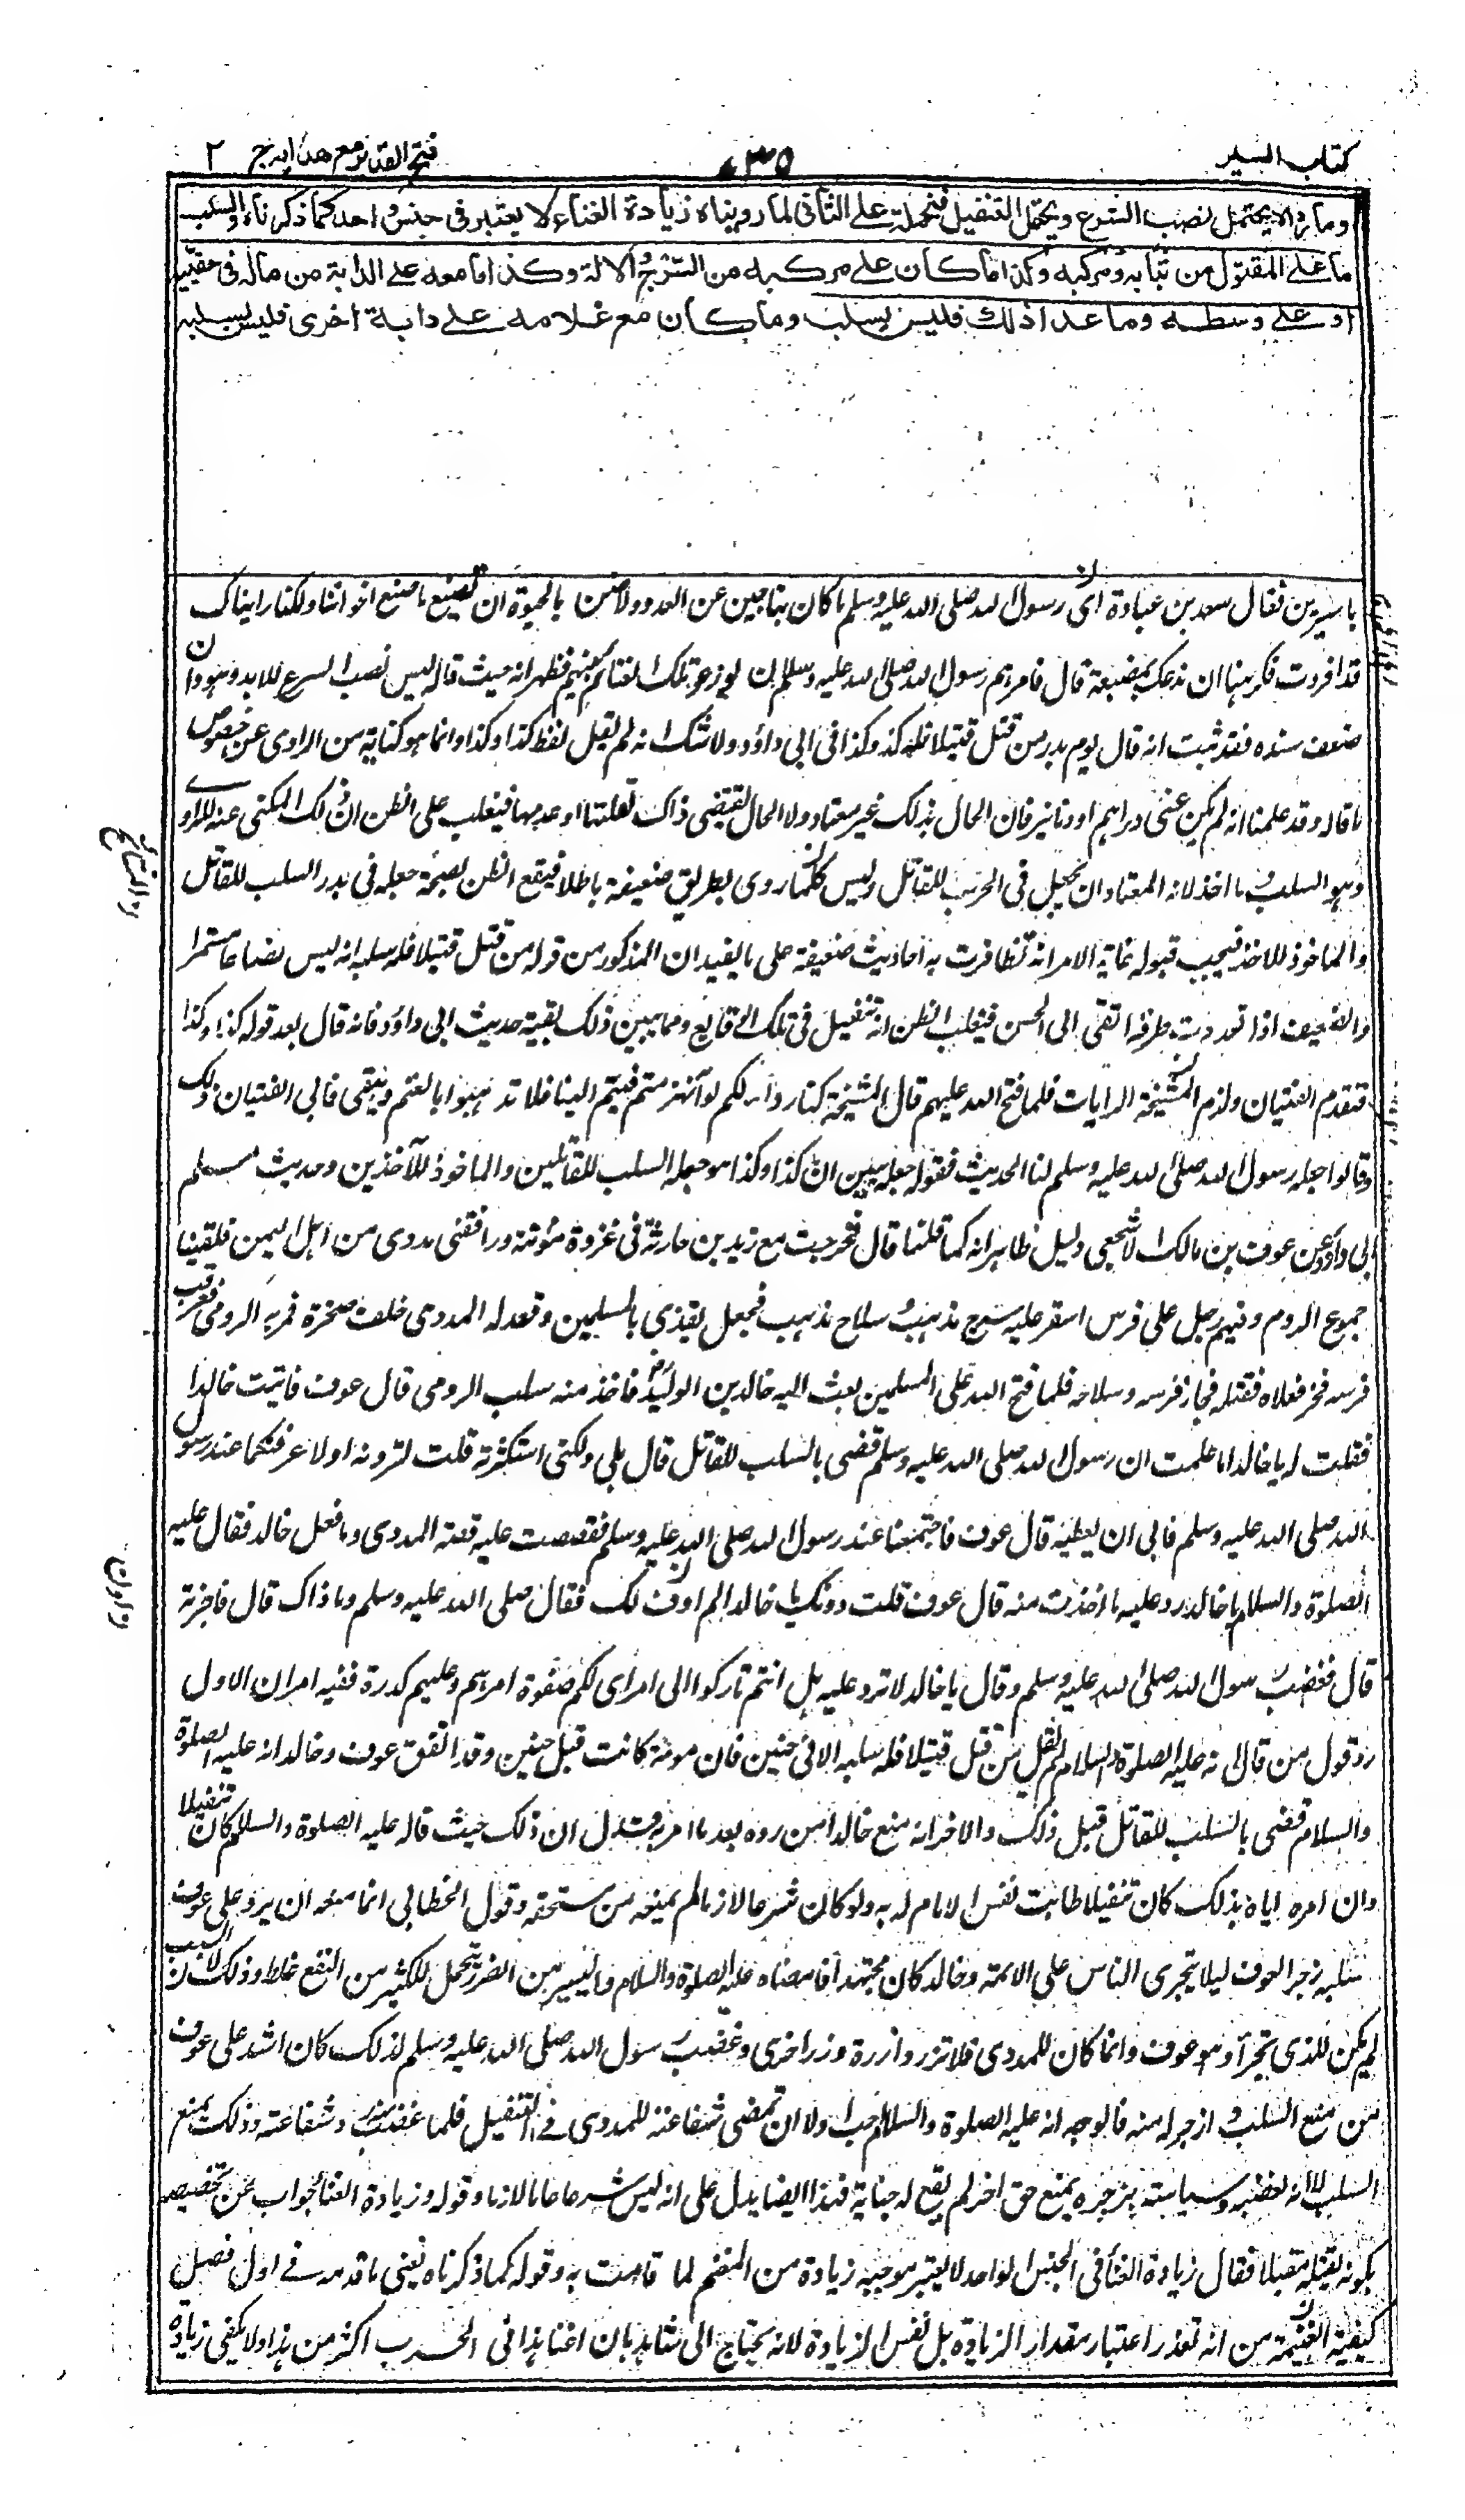 كتاب السير
٧٣٥
فتح القدير مع هدايه ج ٢
وما رواه يحتمل نصب الشرع ويحتمل التنفيل فنحمله على الثاني لما رويناه وزيادة الغناء لا يعتبر في جنس واحد كما ذكرناه والسلب
ما على المقتول من ثيابه ومركبه وكذا ما كان على مركبه من السرج والالة وكذا ما معه على الدابة من ماله في حقيبته
او على وسطه وما عدا ذلك فليس بسلب وما كان مع غلامه على دابة اخرى فليس بسلبه
باسيرين فقال سعد بن عبادة اى رسول الله صلى الله عليه وسلم ما كان بنا جبن عن العدو ولا ضن بالحيوة ان نصنع ما صنع اخواننا ولكنا رايناك
قد افردت فكرهنا ان ندعك بمضيعة قال فامرهم رسول الله صلى الله عليه وسلم ان يوزعوا تلك الغنائم بينهم فظهر انه حيث قاله ليس نصب الشرع للابد وهو وان
ضعف سنده فقد ثبت انه قال يوم بدر من قتل قتيلا فله كذا وكذا في ابي داؤد ولا شك انه لم يقل لفظ كذا وكذا وانما هو كناية من الراوى عن خصوص
ما قاله وقد علمنا انه لم يكن عنى دراهم او دنانير فان الحال بذلك غير معتاد ولا الحال تقتضي ذاك لقلتها او عدمها فيغلب على الظن ان ذلك المكنى عنه للراوى
وهو السلب وما اخذ لانه المعتاد ان يجعل في الحرب للقاتل وليس كلما روى بطريق ضعيفة باطلا فيقع الظن بصحة جعله في بدر السلب للقاتل
والماخوذ للاخذ فيجب قبوله غاية الامر انه تظافرت به احاديث ضعيفة على ما يفيد ان المذكور من قوله من قتل قتيلا فله سلبه انه ليس نصا عاما مستمرا
والضعيف اذا تعددت طرقه ارتقى الى الحسن فيغلب الظن انه تنفيل في تلك الوقايع ومما يبين ذلك بقية حديث ابي داؤد فانه قال بعد قوله كذا وكذا
فتقدم الفتيان ولزم المشيخة الرايات فلما فتح الله عليهم قال المشيخة كنا ردءا لكم لو انهزمتم فئتم الينا فلا تذهبوا بالمغنم ونبقى فابى الفتيان ذلك
وقالوا جعله رسول الله صلى الله عليه وسلم لنا الحديث فقوله جعله يبين ان كذا وكذا هو جعله السلب للقاتلين والماخوذ للآخذين وحديث مسلم
ابي داؤد عن عوف بن مالك الاشجعى دليل ظاهر انه كما قلنا قال خرجت مع زيد بن حارثة في غزوة مؤتة ورافقني مددى من اهل اليمن فلقينا
جموع الروم وفيهم رجل على فرس اشقر عليه سرج مذهب وسلاح مذهب فجعل يفرى بالمسلمين وقعد له المددى خلف صخرة فمر به الرومى فعرقب
فرسه فخر فعلاه فقتله فحاز فرسه وسلاحه فلما فتح الله على المسلمين بعث اليه خالد بن الوليد فاخذ منه سلب الرومى قال عوف فاتيت خالدا
فقلت له يا خالد اما علمت ان رسول الله صلى الله عليه وسلم قضى بالسلب للقاتل قال بلى ولكنى استكثرته قلت لتردنه او لاعرفنكها عند رسول
الله صلى الله عليه وسلم فابى ان يعطيه قال عوف فاجتمعنا عند رسول الله صلى الله عليه وسلم فقصصت عليه قصة المددى وما فعل خالد فقال عليه
الصلوة والسلام يا خالد رد عليه ما اخذت منه قال عوف قلت دونك يا خالد الم اوف لك فقال صلى الله عليه وسلم وما ذاك قال فاخبرته
قال فغضب رسول الله صلى الله عليه وسلم وقال يا خالد لا ترد عليه هل انتم تاركوا لى امراى لكم صفوة امرهم وعليهم كدره ففيه امران الاول
رد قول من قال انه عليه الصلوة والسلام لم يقل من قتل قتيلا فله سلبه الا في حنين فان مؤتة كانت قبل حنين وقد اتفق عوف وخالد انه عليه الصلوة
والسلام قضى بالسلب للقاتل قبل ذلك والاخر انه منع خالدا من رده بعد ما امر به فدل ان ذلك حيث قاله عليه الصلوة والسلام كان تنفيلا
وان امره اياه بذلك كان تنفيلا طابت نفس الامام له به ولو كان شرعا لازما لم يمنعه من مستحقه وقول الخطابي انما منعه ان يرد على عوف
سلبه زجرا لعوف ليلا يتجرى الناس على الائمة وخالد كان مجتهدا فامضاه عليه الصلوة والسلام واليسير من الضرر يتحمل للكثير من النفع غلط وذلك لان السلب
لم يكن للذى تجرأ وهو عوف وانما كان للمددى فلا تزر وازرة وزر اخرى وغضب رسول الله صلى الله عليه وسلم لذلك كان اشد على عوف
من منع السلب وازجر له منه فالوجه انه عليه الصلوة والسلام احب اولا ان تمضى شفاعته للمددى في التنفيل فلما غضب منه رد شفاعته وذلك بمنع
السلب لا انه لغضبه وسياسته بزجره يمنع حق اخر لم يقع له جناية فهذا ايضا يدل على انه ليس شرعا عاما لازما وقوله وزيادة الغناء جواب عن تخصيصه
بكونه يقتله مقبلا فقال زيادة الغناء في الجنس الواحد لا يعتبر موجبه زيادة من المغنم لما قامت به وقوله كما ذكرناه يعني ما قدمه في اول فصل
كيفية القسمة من انه تعذر اعتبار مقدار الزيادة بل نفس الزيادة لانه يحتاج الى شاهد بان اغنا هذا في الحرب اكثر من هذا ولا يكفى زيادة